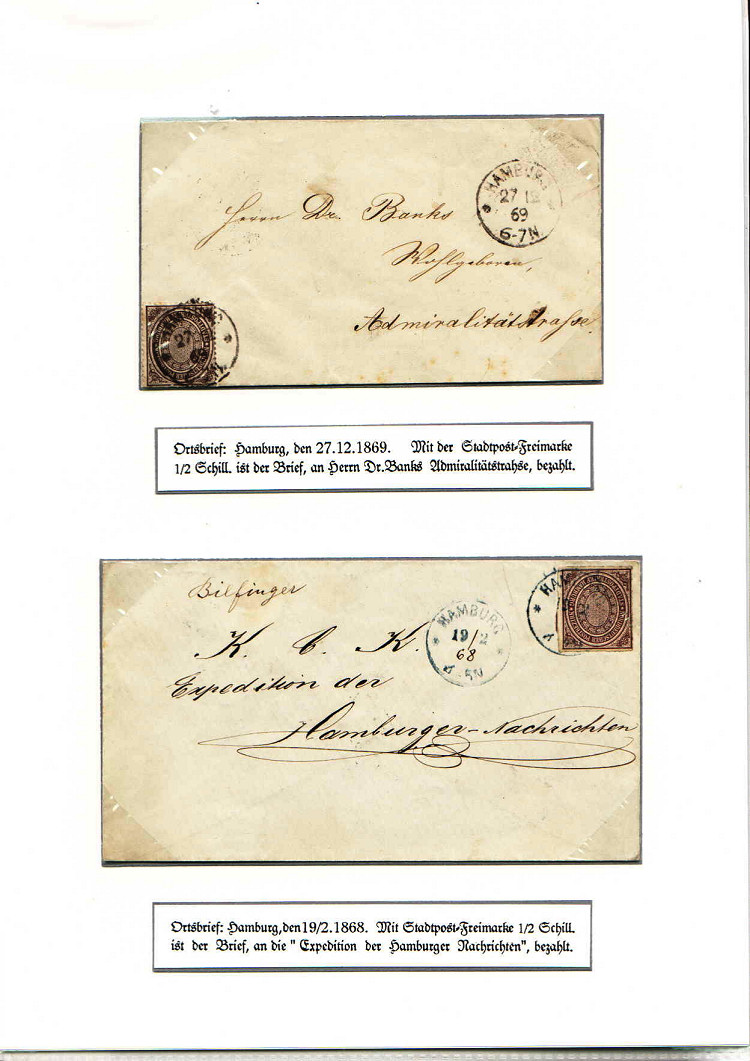 HAMBURG
27 12
69
6-7N
Herrn Dr. Banks
Wohlgeboren,
Admiralitätstrasse.
27
Ortsbrief: Hamburg, den 27.12.1869. Mit der Stadtpost-Freimarke
1/2 Schill. ist der Brief, an Herrn Dr.Banks Admiralitätstrahse, bezahlt.
Bilfinger
HAMBURG
19/2
68
HA
K. C. K.
Expedition der
Hamburger-Nachrichten
Ortsbrief: Hamburg,den 19/2.1868. Mit Stadtpost-Freimarke 1/2 Schill.
ist der Brief, an die " Expedition der Hamburger Nachrichten", bezahlt.